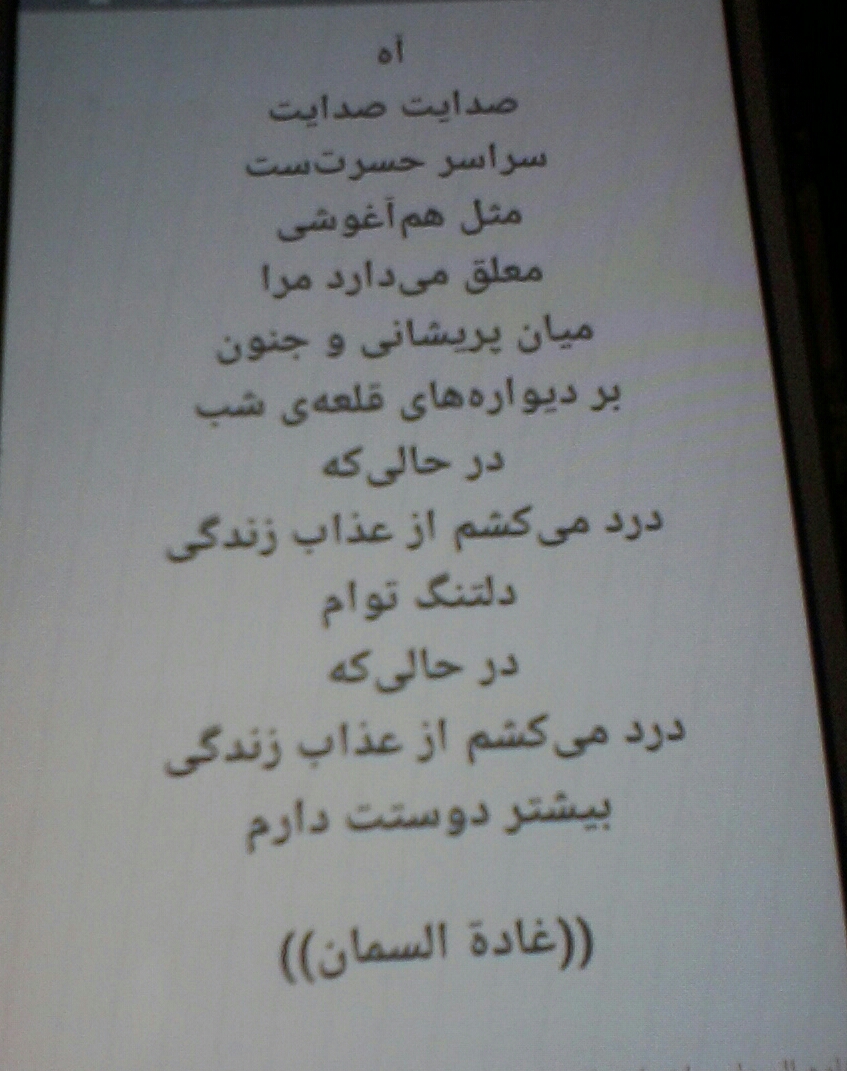 آه
صدایت صدایت
سراسر حسرت‌ست
مثل هم‌آغوشی
معلق می‌دارد مرا
میان پریشانی و جنون
بر دیواره‌های قلعه‌ی شب
در حالی‌که
درد می‌کشم از عذاب زندگی
دلتنگ توام
در حالی‌که
درد می‌کشم از عذاب زندگی
بیشتر دوستت دارم
((غادة السمان))